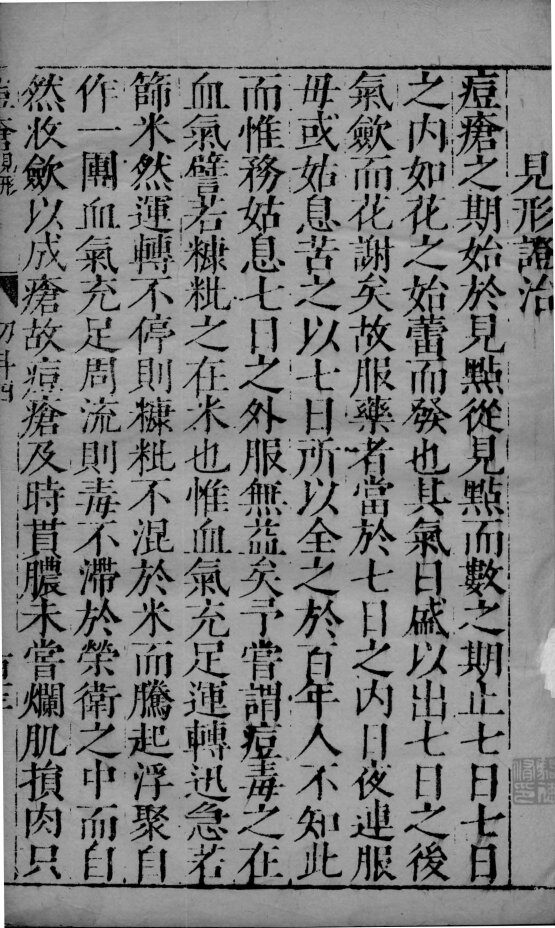 見形證治
痘瘡之期始於見點從見點而數之期止七日七日
之内如花之始蕾而發也其氣日盛以出七日之後
氣歛而花謝矣故服藥者當於七日之内日夜連服
毋或姑息苦之以七日所以全之於百年人不知此
而惟務姑息七日之外服無益矣予嘗謂痘毒之在
血氣譬若糠粃之在米也惟血氣充足運轉迅急若
篩米然運轉不停則糠粃不混於米而騰起浮聚自
作一團血氣充足周流則毒不滯於榮衛之中而自
然收歛以成瘡故痘瘡及時貫膿未嘗爛肌損肉只
痘瘡見形